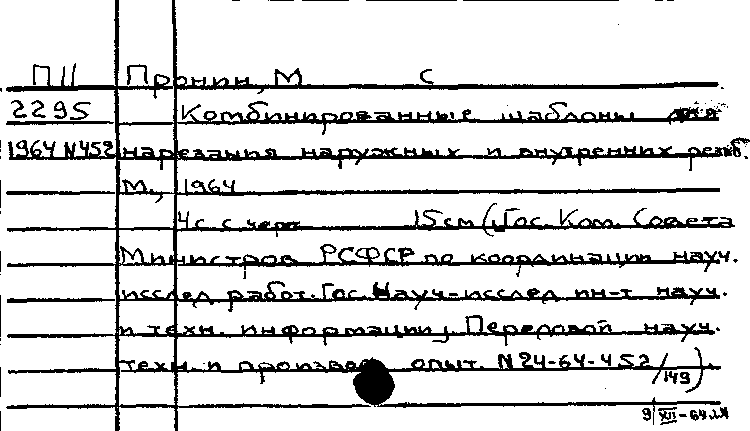 П11 Пронин, М. С
2295 Комбинированные шаблоны для
1964 N452 нарезания наружных и внутренних резьб.
М., 1964
4с с черт 15см (Гос. Ком. Совета
Министров РСФСР по координации науч.
исслед работ. Гос. Науч-исслед ин-т науч.
и техн. информации, Передовой науч.
техн. и производ опыт. N24-64-452/149).
9/XII-64.